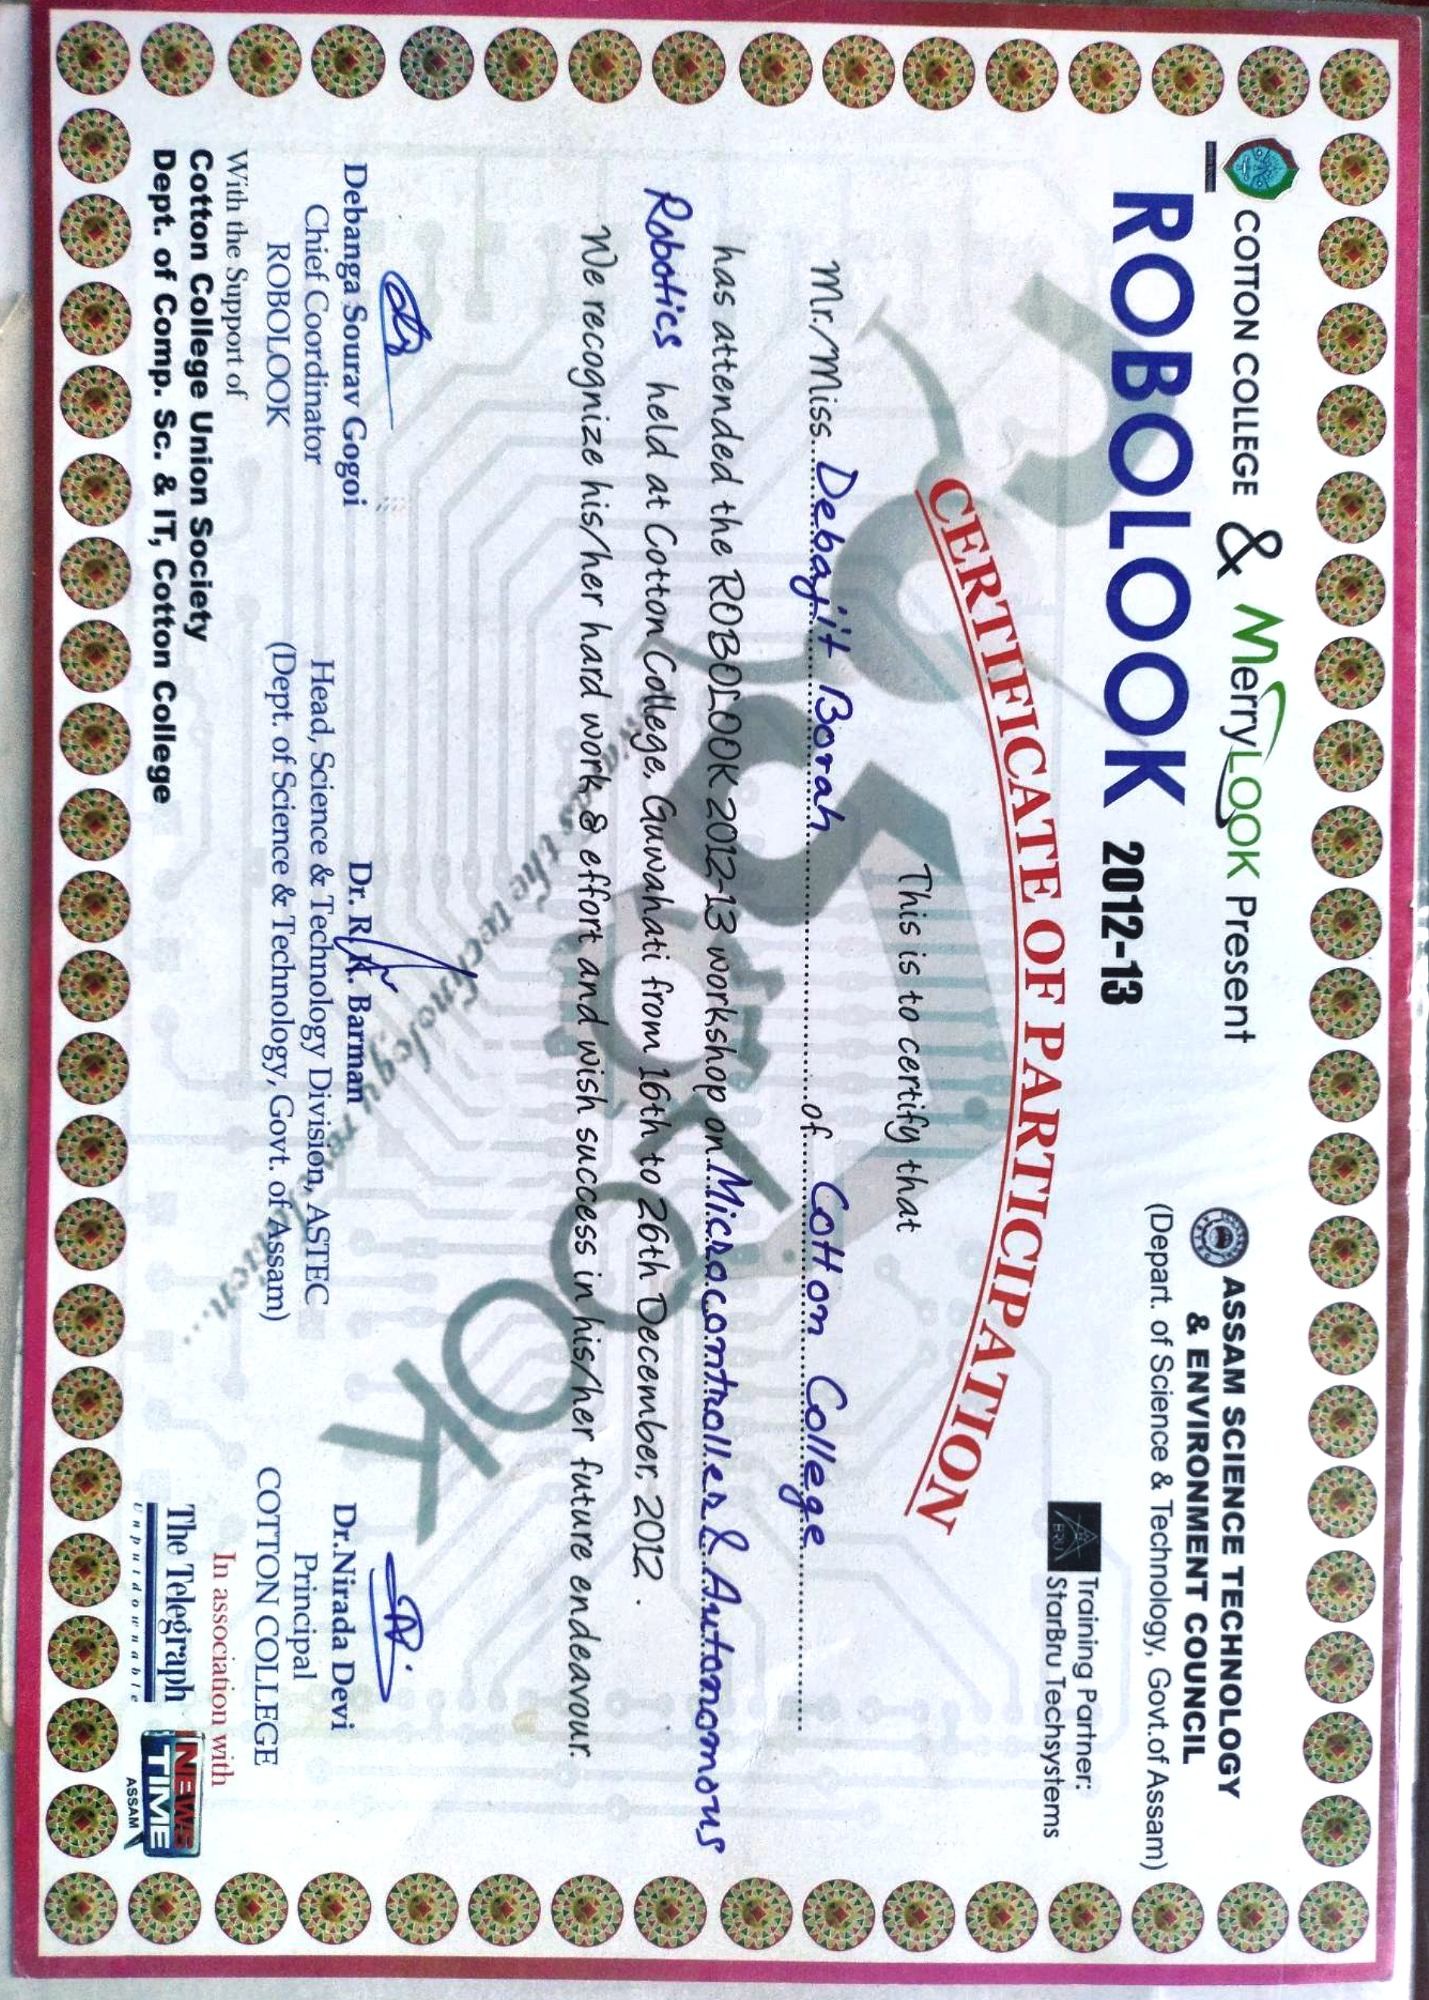 COTTON COLLEGE & MerryLOOK Present
ROBOLOOK 2012-13
ASSAM SCIENCE TECHNOLOGY
& ENVIRONMENT COUNCIL
(Depart. of Science & Technology, Govt.of Assam)
Training Partner:
StarBru Techsystems
CERTIFICATE OF PARTICIPATION
This is to certify that
Mr./Miss. Debajit Borah of Cotton College
has attended the ROBOLOOK 2012-13 workshop on Microcontroller & Autonomous
Robotics held at Cotton College, Guwahati from 16th to 26th December, 2012.
We recognize his/her hard work & effort and wish success in his/her future endeavour.
Debanga Sourav Gogoi
Chief Coordinator
ROBOLOOK
Dr. R.K. Barman
Head, Science & Technology Division, ASTEC
(Dept. of Science & Technology, Govt. of Assam)
Dr.Nirada Devi
Principal
COTTON COLLEGE
With the Support of
Cotton College Union Society
Dept. of Comp. Sc. & IT, Cotton College
In association with
The Telegraph
Unputdownable
NEWS
TIME
ASSAM